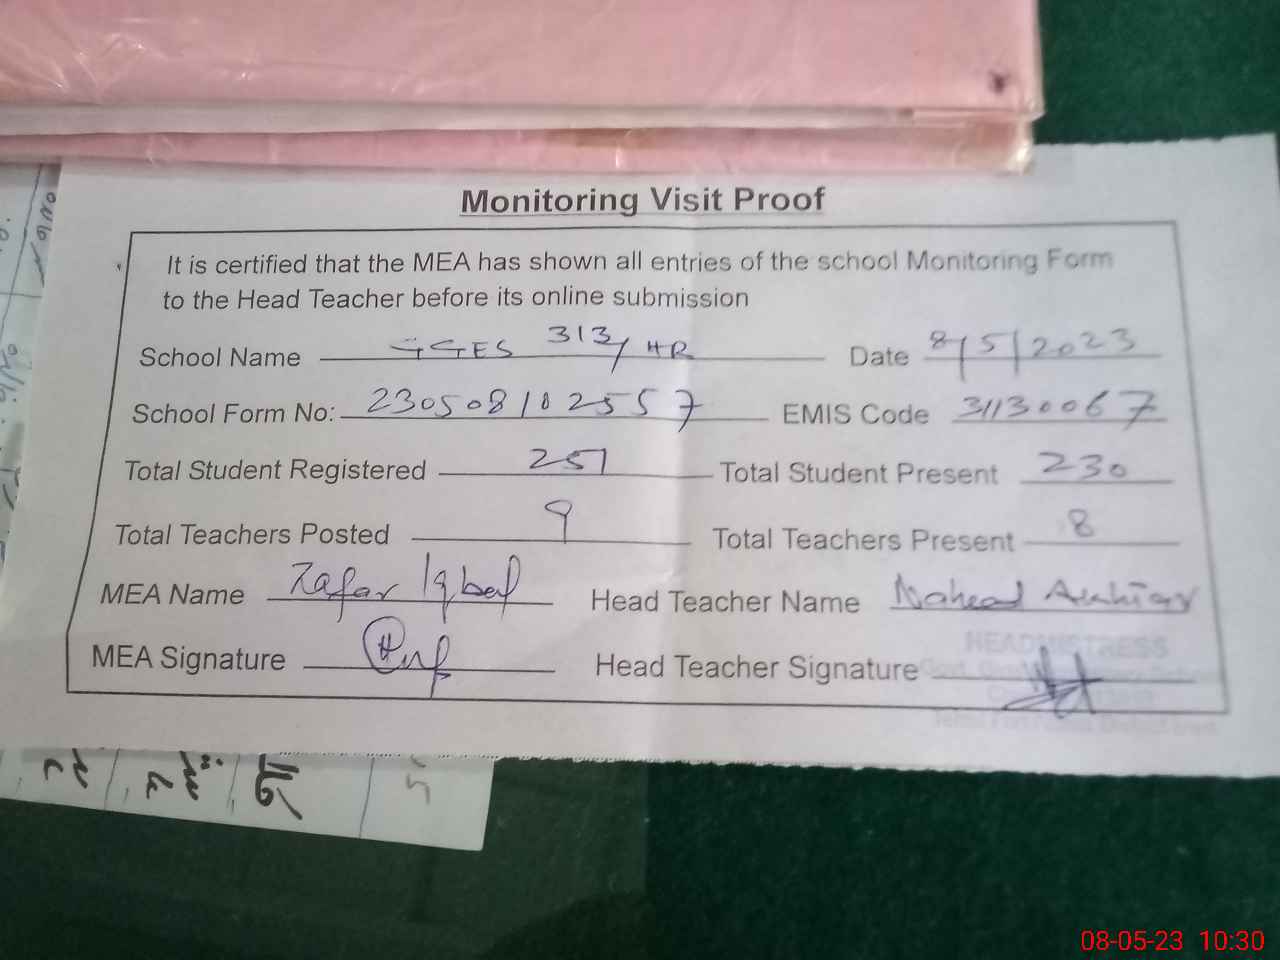 Monitoring Visit Proof
It is certified that the MEA has shown all entries of the school Monitoring Form
to the Head Teacher before its online submission
School Name GGES 313/HR Date 8/5/2023
School Form No: 230508102557 EMIS Code 31130067
Total Student Registered 251 Total Student Present 230
Total Teachers Posted 9 Total Teachers Present 8
MEA Name Zafar Iqbal Head Teacher Name
MEA Signature Head Teacher Signature
HEADMISTRESS
08-05-23 10:30